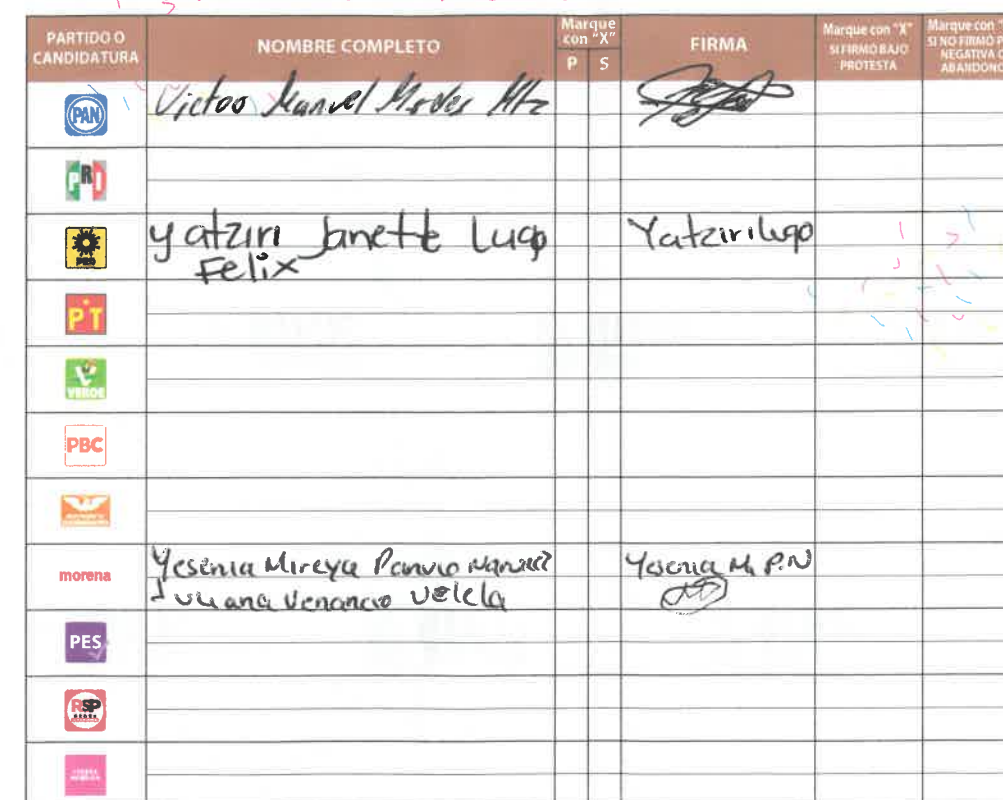 PARTIDO O
CANDIDATURA
NOMBRE COMPLETO
Marque
con "X"
P S
FIRMA
Marque con "X"
SI FIRMÓ BAJO
PROTESTA
Marque con "
SI NO FIRMÓ P
NEGATIVA O
ABANDONO
PAN
Victor Manuel Mtz
PRI
PRD
yatziri Janette Lugo
Felix
Yatzirilugo
PT
VERDE
PBC
morena
Yesenia Mireya
Yesenia M. P.N
Juliana Venancio
PES
RSP